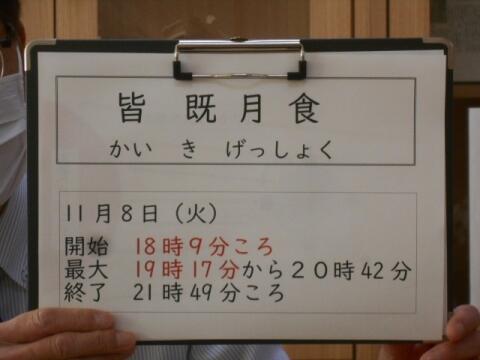 皆既月食
かいきげっしょく
11月8日（火）
開始 18時9分ころ
最大 19時17分から20時42分
終了 21時49分ころ